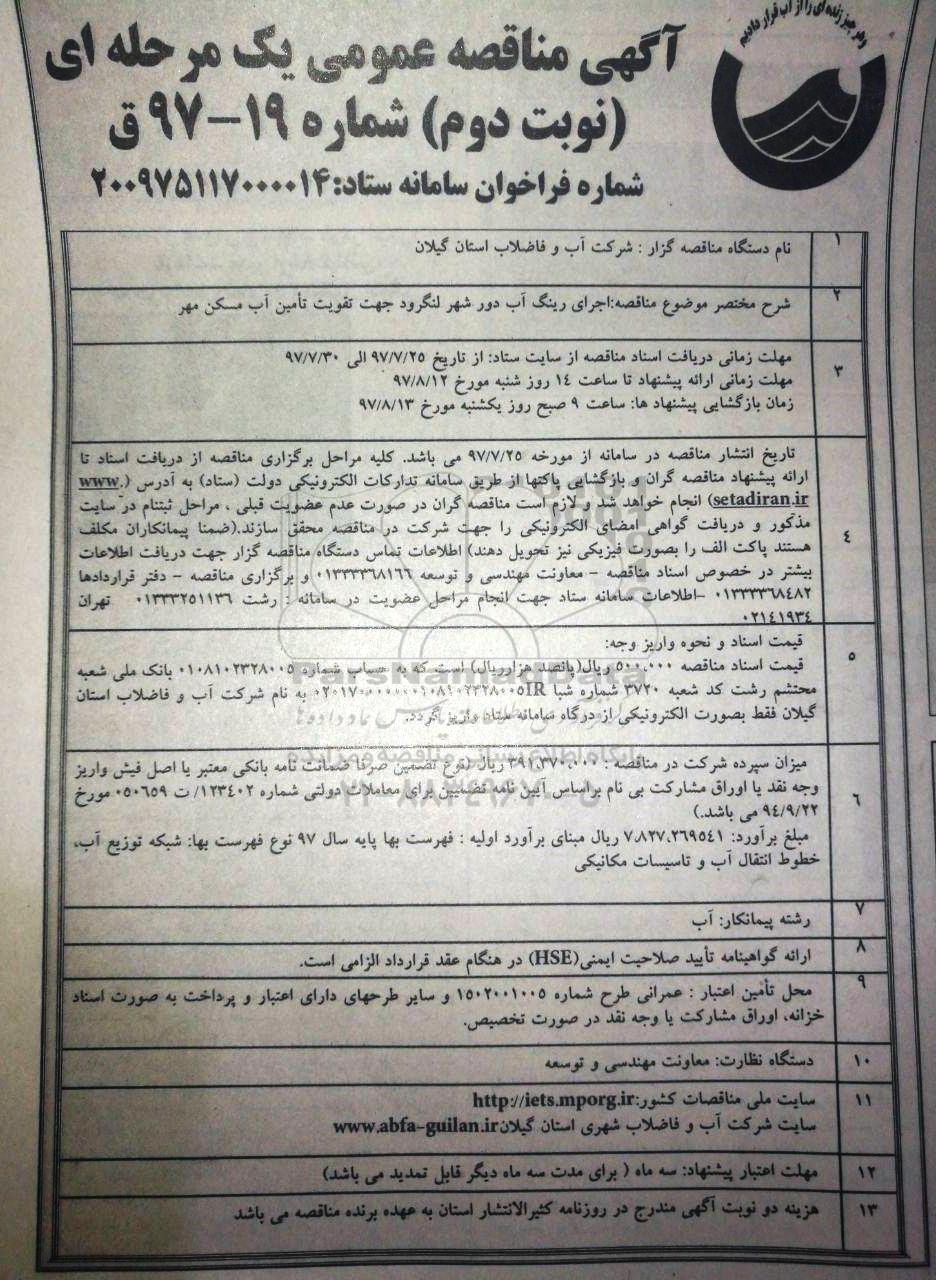 و هر چیز زنده ای را از آب قرار دادیم
آگهی مناقصه عمومی یک مرحله ای
(نوبت دوم) شماره ۱۹-۹۷ ق
شماره فراخوان سامانه ستاد: ۲۰۰۹۷۵۱۱۷۰۰۰۰۱۴
۱ نام دستگاه مناقصه گزار : شرکت آب و فاضلاب استان گیلان
۲ شرح مختصر موضوع مناقصه:اجرای رینگ آب دور شهر لنگرود جهت تقویت تأمین آب مسکن مهر
۳ مهلت زمانی دریافت اسناد مناقصه از سایت ستاد: از تاریخ ۹۷/۷/۲۵ الی ۹۷/۷/۳۰
مهلت زمانی ارائه پیشنهاد تا ساعت ۱۴ روز شنبه مورخ ۹۷/۸/۱۲
زمان بازگشایی پیشنهاد ها: ساعت ۹ صبح روز یکشنبه مورخ ۹۷/۸/۱۳
۴ تاریخ انتشار مناقصه در سامانه از مورخه ۹۷/۷/۲۵ می باشد. کلیه مراحل برگزاری مناقصه از دریافت اسناد تا
ارائه پیشنهاد مناقصه گران و بازگشایی پاکتها از طریق سامانه تدارکات الکترونیکی دولت (ستاد) به آدرس (www.
setadiran.ir) انجام خواهد شد و لازم است مناقصه گران در صورت عدم عضویت قبلی ، مراحل ثبتنام در سایت
مذکور و دریافت گواهی امضای الکترونیکی را جهت شرکت در مناقصه محقق سازند.(ضمنا پیمانکاران مکلف
هستند پاکت الف را بصورت فیزیکی نیز تحویل دهند) اطلاعات تماس دستگاه مناقصه گزار جهت دریافت اطلاعات
بیشتر در خصوص اسناد مناقصه - معاونت مهندسی و توسعه ۰۱۳۳۳۳۶۸۱۶۶ و برگزاری مناقصه - دفتر قراردادها
۰۱۳۳۳۳۶۸۴۸۲ -اطلاعات سامانه ستاد جهت انجام مراحل عضویت در سامانه : رشت ۰۱۳۳۳۲۵۱۱۳۶ تهران
۰۲۱۴۱۹۳۴
۵ قیمت اسناد و نحوه واریز وجه:
قیمت اسناد مناقصه ۵۰۰،۰۰۰ ریال(پانصد هزارریال) است که به حساب شماره ۰۱۰۸۱۰۲۳۲۸۰۰۵ بانک ملی شعبه
محتشم رشت کد شعبه ۳۷۲۰ شماره شبا به نام شرکت آب و فاضلاب استان
گیلان فقط بصورت الکترونیکی از درگاه سامانه ستاد واریز گردد.
ParsNamadData
پایگاه اطلاع رسانی مناقصه و مزایده
۶ میزان سپرده شرکت در مناقصه : ۳۹۱،۳۷۰،۰۰۰ ریال(نوع تضمین صرفا ضمانت نامه بانکی معتبر یا اصل فیش واریز
وجه نقد یا اوراق مشارکت بی نام براساس آیین نامه تضمین برای معاملات دولتی شماره ۱۲۳۴۰۲/ ت ۰۵۰۶۵۹ مورخ
۹۴/۹/۲۲ می باشد.)
مبلغ برآورد: ۷،۸۲۷،۲۶۹۵۴۱ ریال مبنای برآورد اولیه : فهرست بها پایه سال ۹۷ نوع فهرست بها: شبکه توزیع آب،
خطوط انتقال آب و تاسیسات مکانیکی
۷ رشته پیمانکار: آب
۸ ارائه گواهینامه تأیید صلاحیت ایمنی(HSE) در هنگام عقد قرارداد الزامی است.
۹ محل تأمین اعتبار : عمرانی طرح شماره ۱۵۰۲۰۰۱۰۰۵ و سایر طرحهای دارای اعتبار و پرداخت به صورت اسناد
خزانه، اوراق مشارکت یا وجه نقد در صورت تخصیص.
۱۰ دستگاه نظارت: معاونت مهندسی و توسعه
۱۱ سایت ملی مناقصات کشور:http://iets.mporg.ir
سایت شرکت آب و فاضلاب شهری استان گیلانwww.abfa-guilan.ir
۱۲ مهلت اعتبار پیشنهاد: سه ماه ( برای مدت سه ماه دیگر قابل تمدید می باشد)
۱۳ هزینه دو نوبت آگهی مندرج در روزنامه کثیرالانتشار استان به عهده برنده مناقصه می باشد